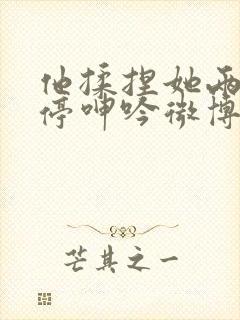 他揉捏她两
停呻吟微博
芒其之一